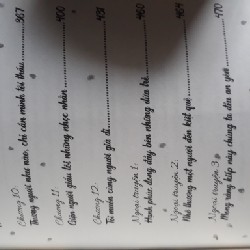 Chương 10:
Thương người như mơ, chỉ cần mình tôi thấu........367
Chương 11:
Còn ngon giấu tôi những nhọc nhằn........400
Chương 12:
Tôi muốn cùng người già đi........431
Ngoại truyện 1:
Hạnh phúc đong đầy bên những đứa trẻ........460
Ngoại truyện 2:
Nhớ thương một người đến kiệt quệ........464
Ngoại truyện 3:
Mong rằng kiếp này chúng ta đều an yên........470